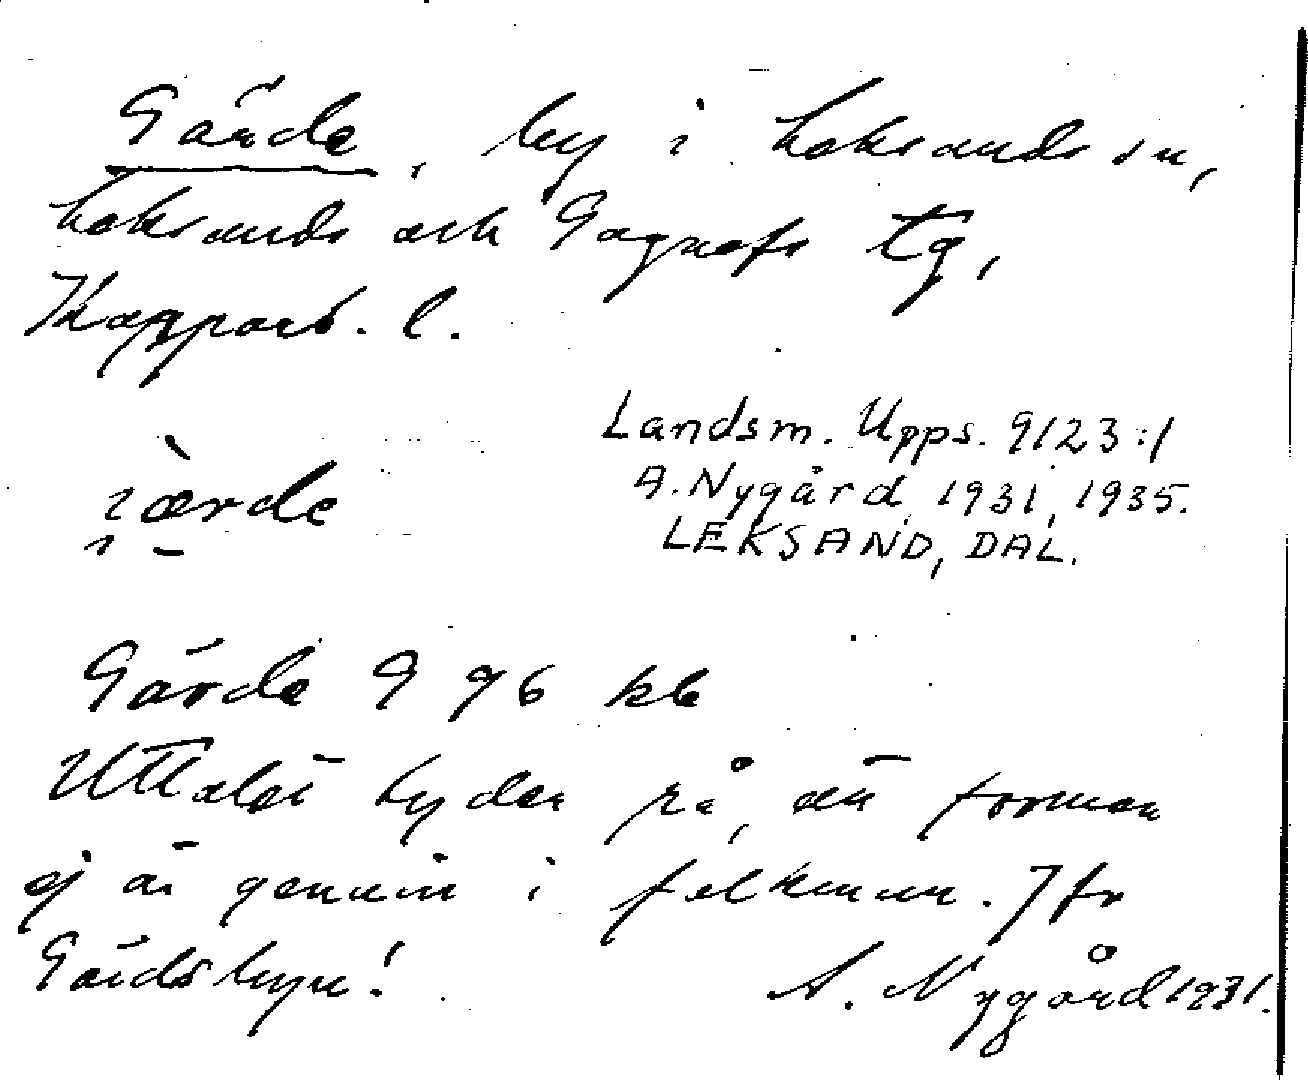 Gärde, by i Leksands sn,
Leksands och Gagnefs tg,
Kopparb. l.
Landsm. Upps. 9123:1
A. Nygård 1931, 1935.
LEKSAND, DAL.
Gärde G 96 kb
Uttalet tyder på, att formen
ej är genuin i folkmun. Jfr
Gärdsbyn!
A. Nygård 1931.